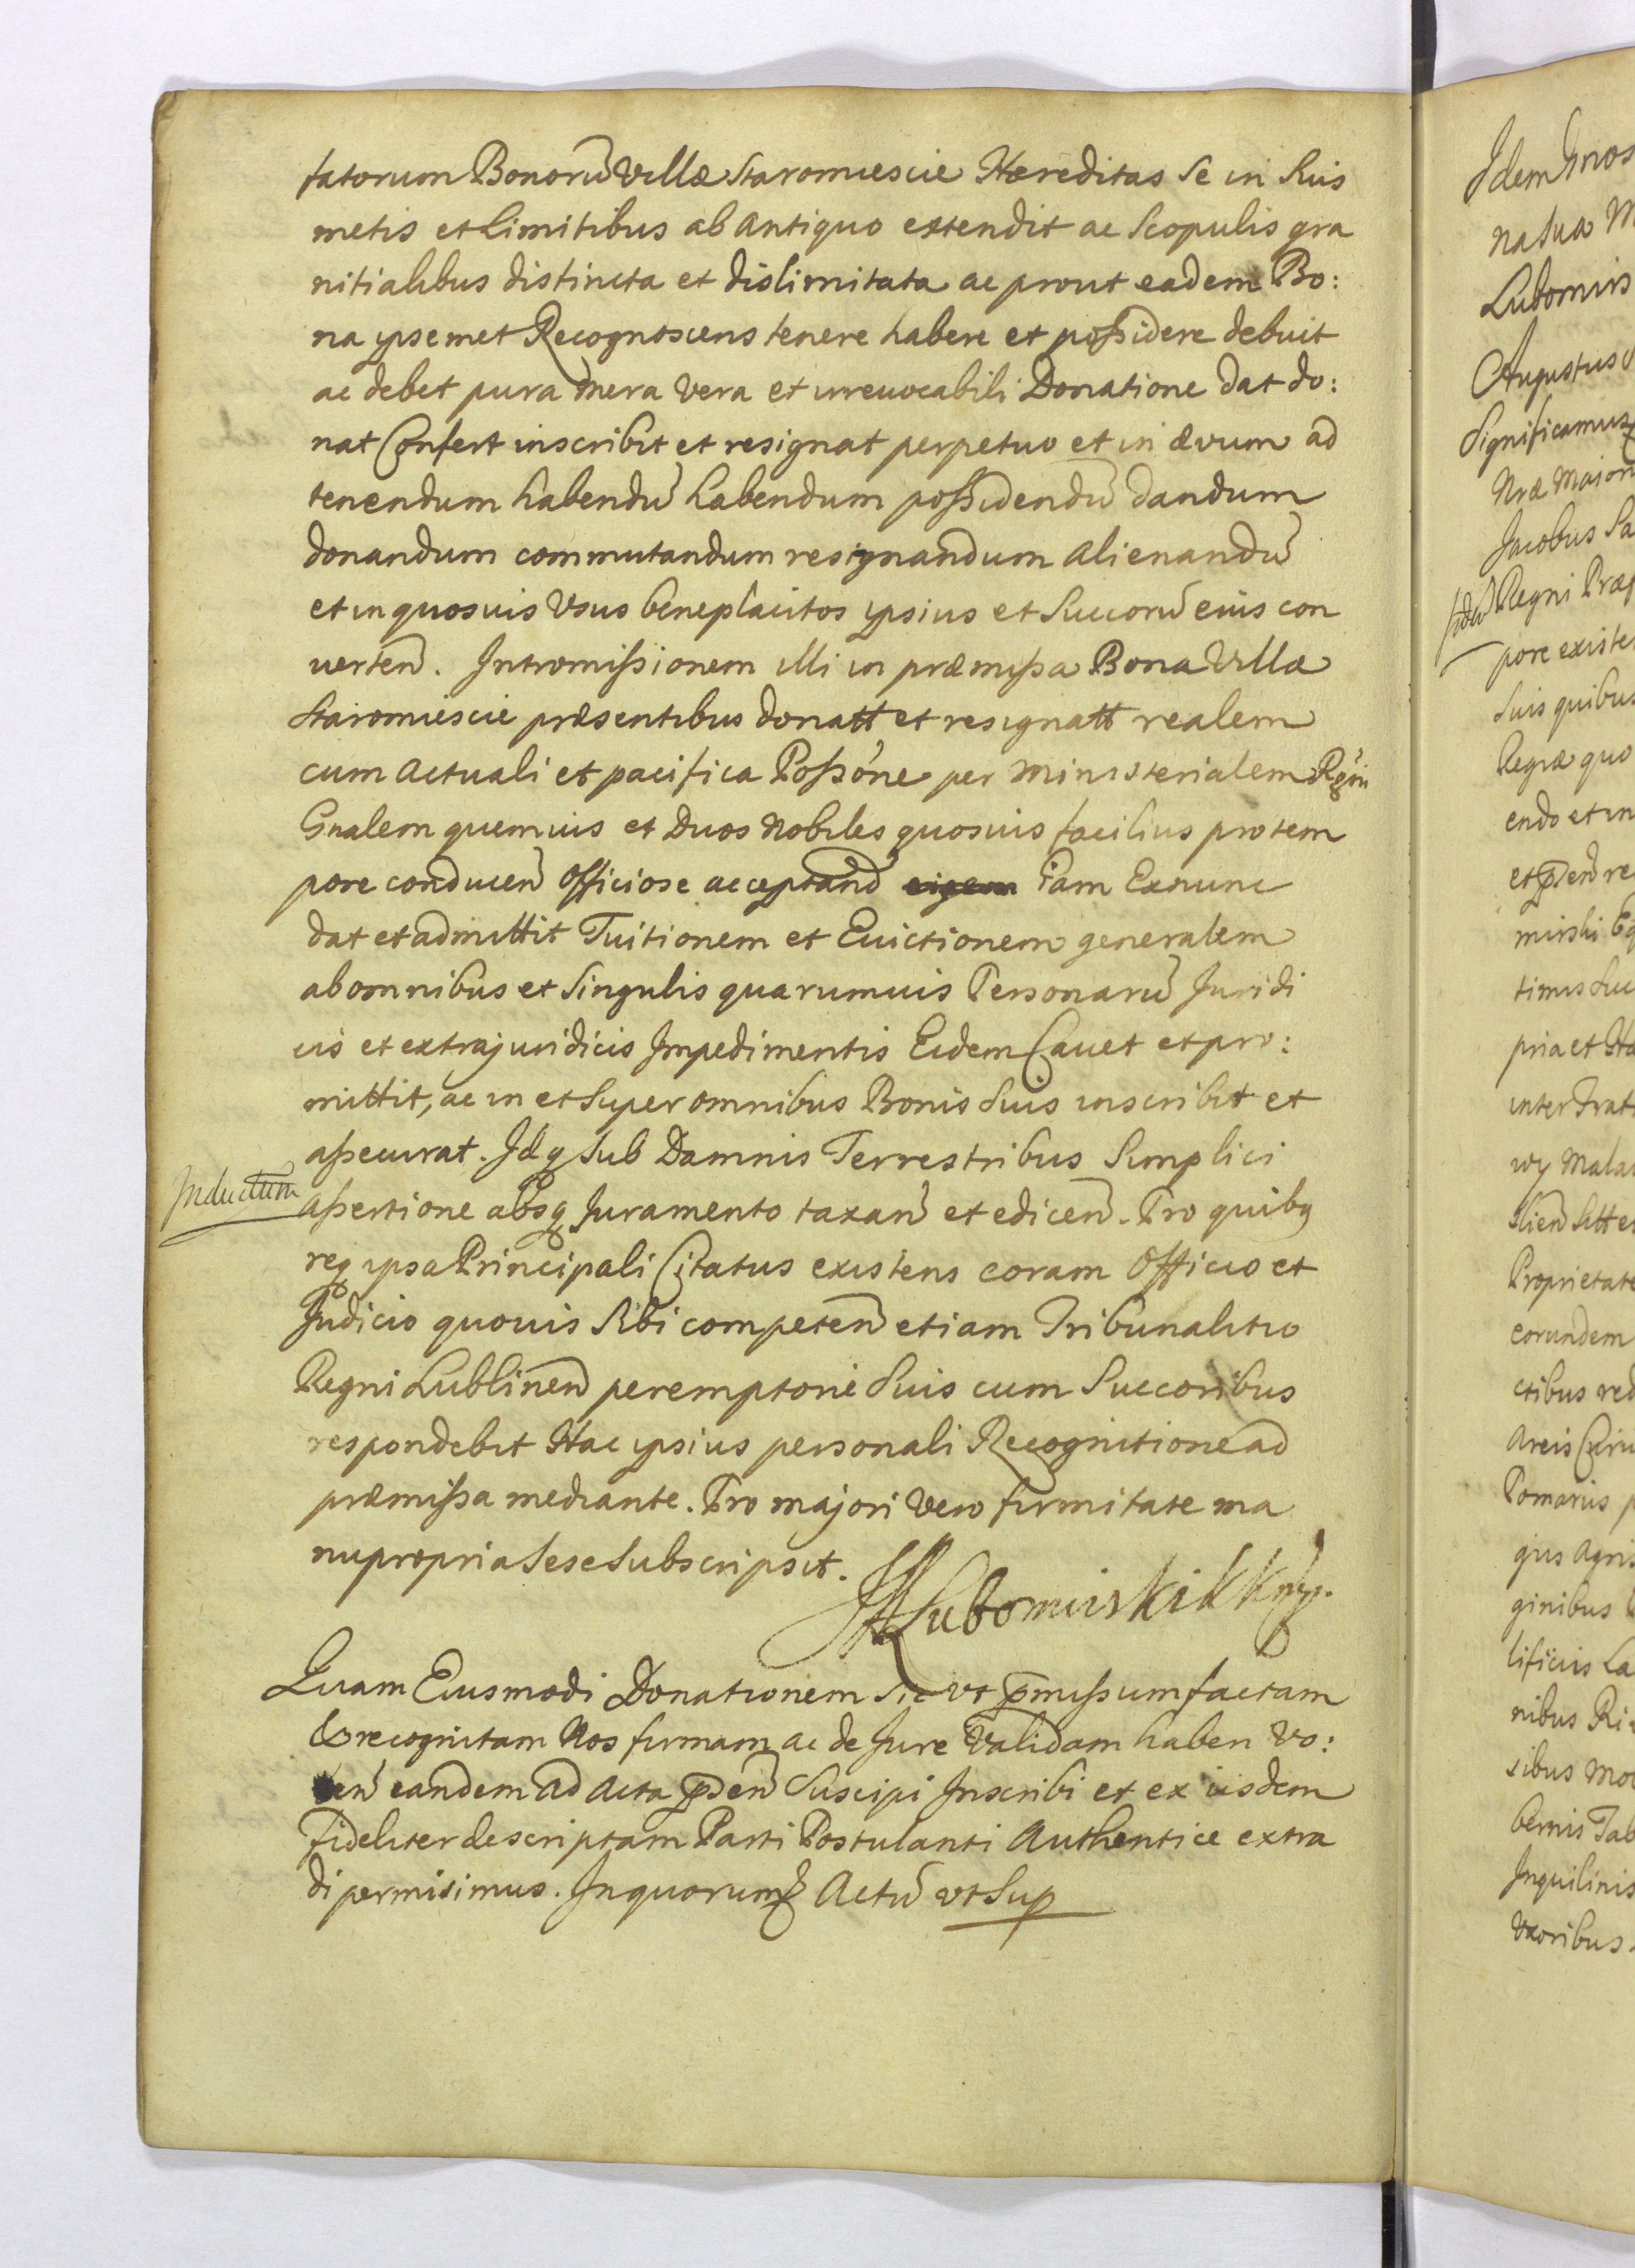 fatorum Bonorũ Villæ Staromiescie Hæreditas Se in Suis
metis et Limitibus ab antiquo extendit ac Scopulis gra
nitialibus distincta et dislimitata ac prout eadem Bo:
na ipsemet Recognoscens tenere habere et possidere debuit
ac debet pura mera vera et irreuocabili Donatione dat do:
nat Confert inscribit et resignat perpetuo et in ævum ad
tenendum habendũ habendum possidendũ dandum
donandum commutandum resignandum alienandũ
et in quosuis Vsus beneplacitos ipsius et Succorũ eius con
uerteñ. Intromissionem illi in præmissa Bona Villæ
Staromiescie præsentibus donatt et resignatt realem
cum actuali et pacifica Possõne per Ministerialem Rgni
Gnalem quemuis et Duos Nobiles quosuis facilius pro tem
pore conduceñ Officiose acceptand iam Exnunc
dat et admittit Tuitionem et Euictionem generalem
ab omnibus et Singulis quarumuis Personarũ Juridi
cis et extrajuridicis Impedimentis Eidem Cauet et pro:
mittit, ac in et Super omnibus Bonis Suis inscribit et
assecurat. Idq Sub Damnis Terrestribus Simplici
Inductum
assertione absq Juramento taxañ et ediceñ. Pro quibq
req ipsa Principali Citatus existens coram Officio et
Judicio quouis Sibi competeñ etiam Tribunalitio
Regni Lublineñ peremptorie Suis cum Succoribus
respondebit Hac ipsius personali Recognitione ad
præmissa mediante. Pro majori vero firmitate ma
nu propria Sese Subscripsit.
Lubomirski
Quam Eiusmodi Donationem Sic vt p̃missum factam
& recognitam Nos firmam ac de Jure validam haberi vo:
leñ eandem ad Acta p̃señ Suscipi Inscribi et ex iisdem
fideliter descriptam Parti Postulanti Authentice extra
di permisimus. In quorum Actũ vt Sup
Idem
Lubomirs
Augustus
Significamus
Nræ Maiori
Jacobus Sa
Regni Præf
pore existe
Suis quibus
Regiæ quo
endo et in
mirski
timis Suc
pria et Hæ
inter Frat
Proprietate
eorundem
ctibus red
Areis
Pomariis
giis Agris
ginibus
lificiis La
nibus Ri
sibus
bernis Tab
Inquilinis
Vxoribus